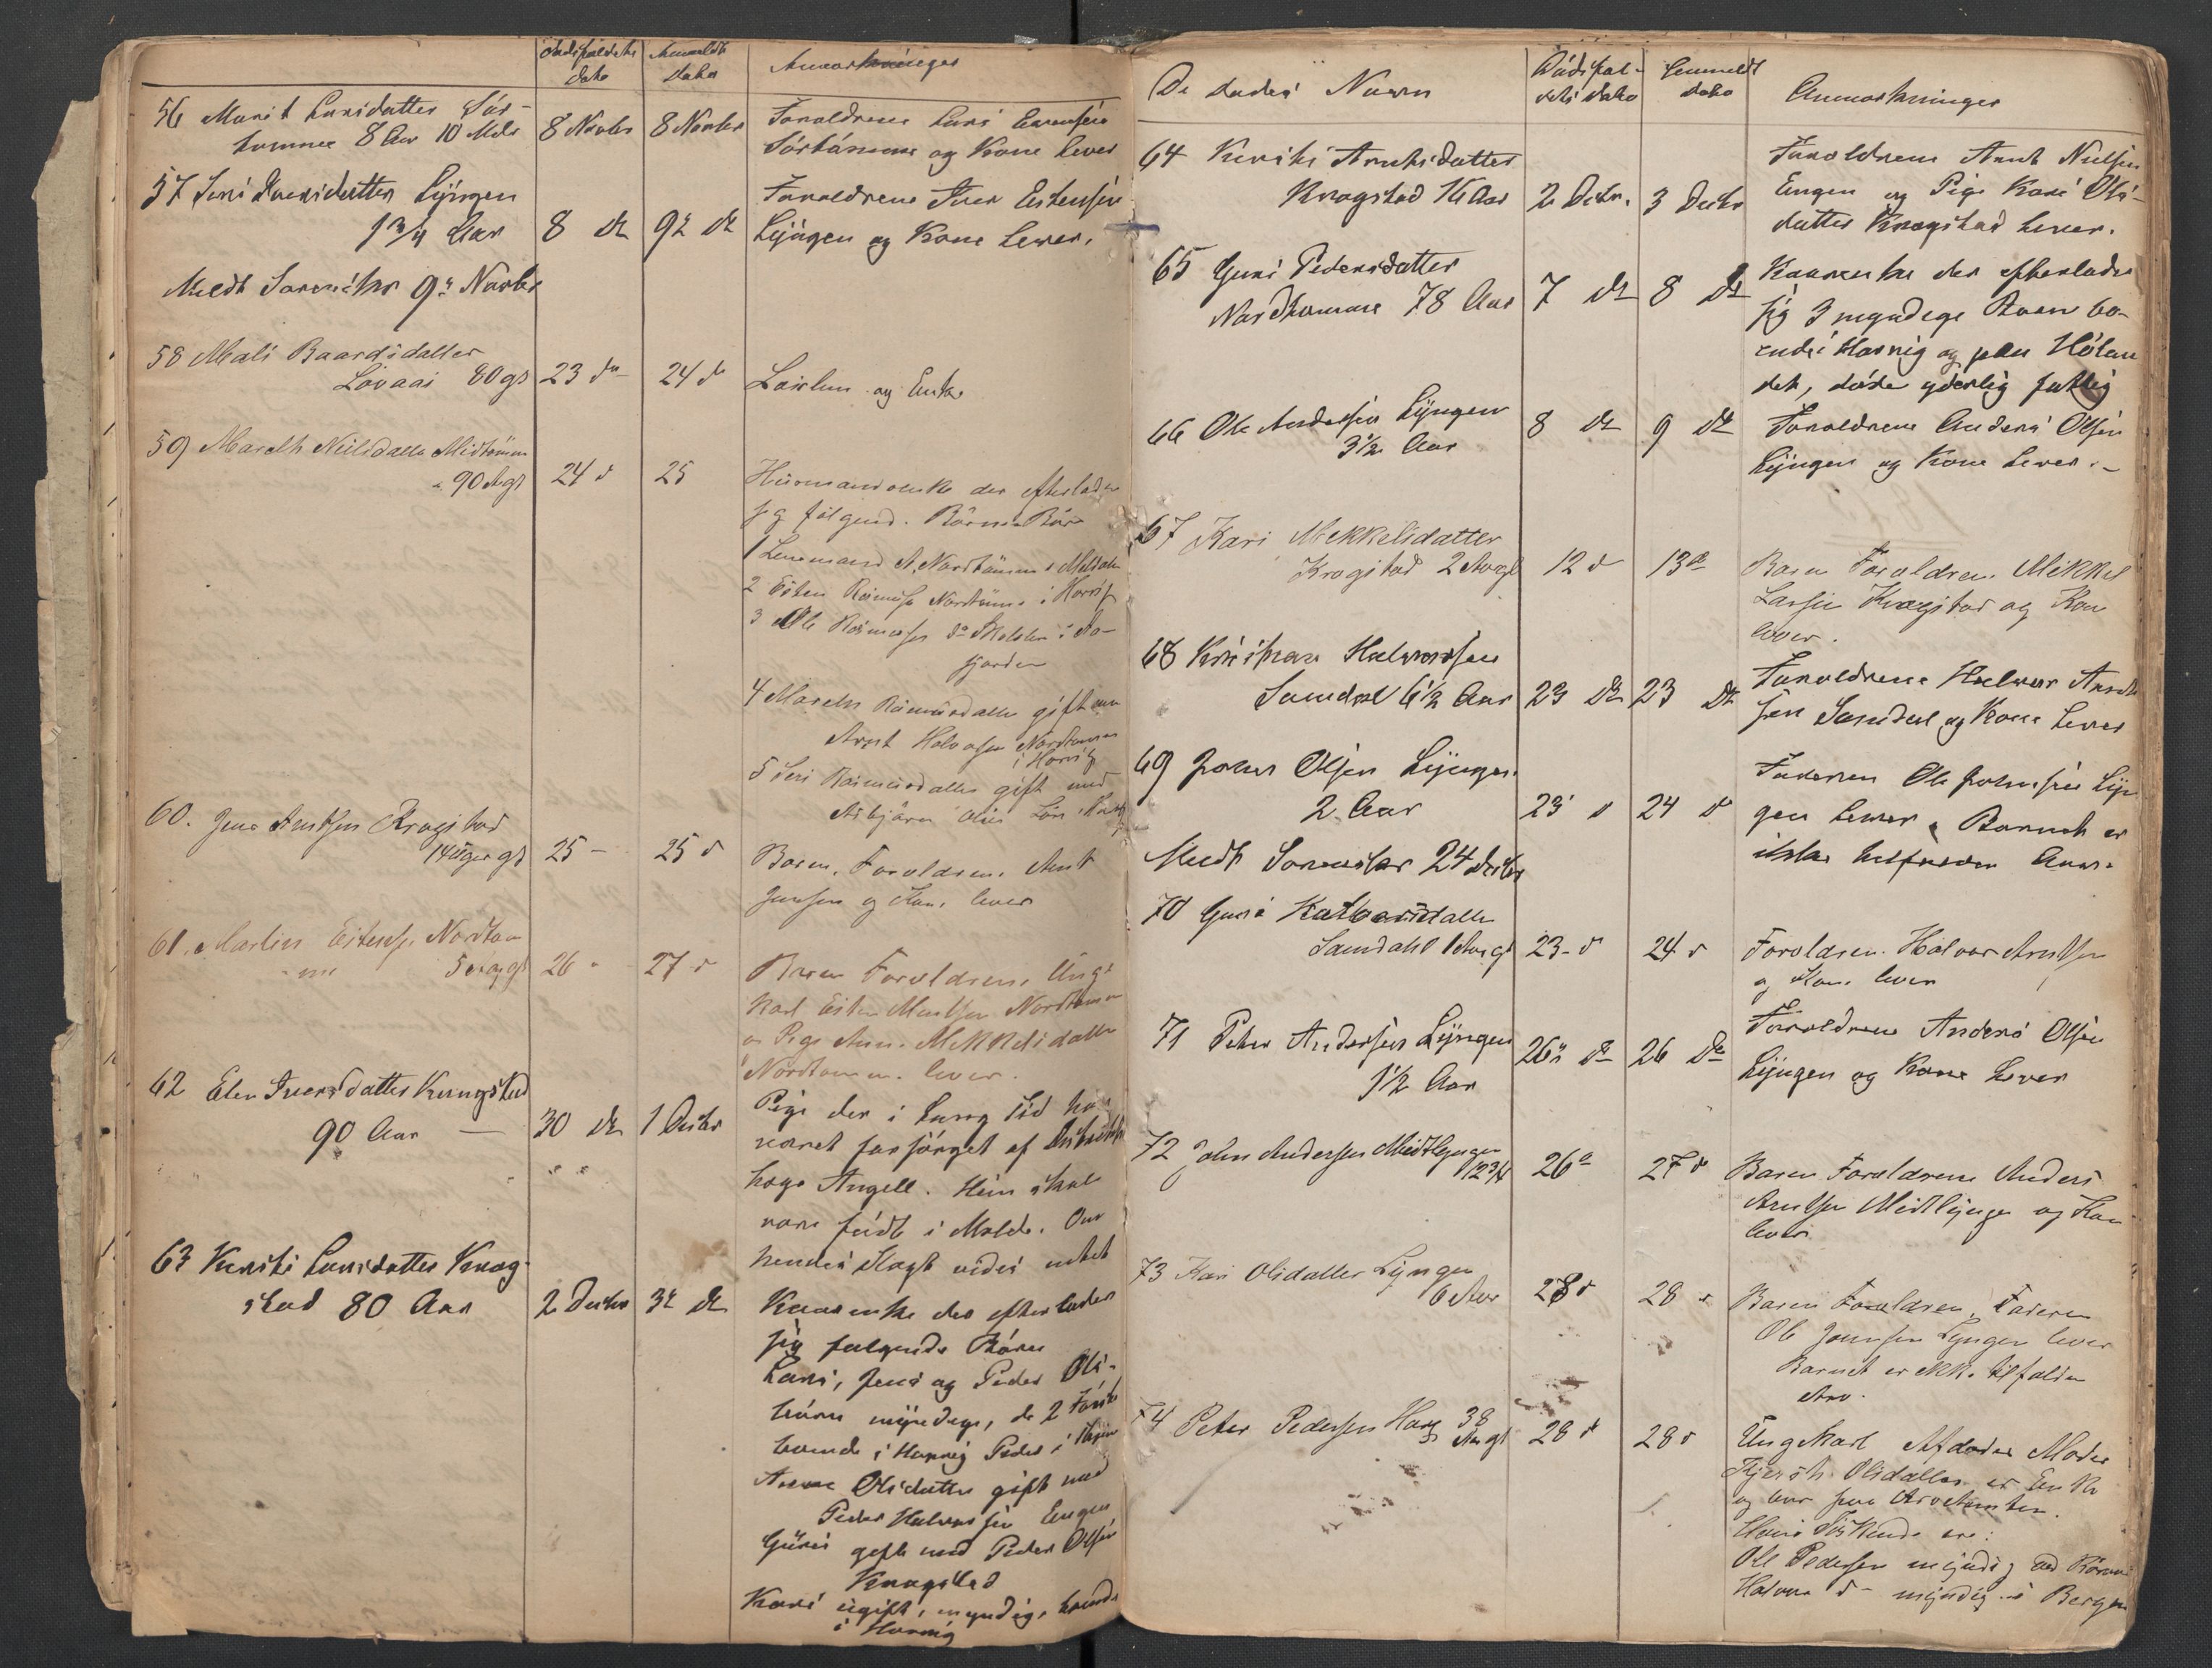 Dødsfaldets Dato Anmeldt Dato Anmærkninger
56 Marit Larsdatter Sör-
tømme 8 Aar 10 Mdr 8 Novbr 8 Novbr
Forældrene Lars
Sörtømme og Kone lever
57 Iversdatter Lÿngen
1 3/4 Aar 8 do 9de do
Forældrene Iver Estensen
Lÿngen og Kone lever.
Meldt Sorenskr 9de Novbr
58 Mali Baardsdatter
Løvaas 80 gl 23 do 24 do og Enke
59 Mareth Nilsdatter Midtömm
90 A gl 24 d 25
Huusmandsenke der efterlader
sig følgend. Börn
1 Lensmand A. Nordtömme i Meldalen
2 Esten Rasmusen Nordtömme i Horrig
3 Ole Rasmusen do i Aa-
fjorden
4 Mareth Rasmusdatter gift m
Arnt Halvorsen Nordtømme
i Horrig
5 Rasmusdatter gift med
Asbjørn Olsen
60. Jens Arntsen Krogstad
14 Uger gl 25 - 25 d
Barn. Forældrene Arnt
Jensen og Kone lever
61. Martin Estensen Nordtøm
me 5 gl 26 " 27 d
Barn Forældrene Ung-
karl Esten Nordtømme
og Pige Mekkelsdatter
Nordtømme lever.
62 Elen Iversdatter Krogstad
90 Aar — 30 do 1 Decbr
Pige der i lang Tid har
været forsørget af
Angell. Hun skal
være født i Molde. Om
hendes Slægt vides intet
63 Kirsti Larsdatter Krog-
stad 80 Aar 2 Decbr 3de do
Kaarenke der efterlader
sig følgende Børn
Lars, Jens og Peder Ols-
børn myndige, de 2 Første
boende i Horrig Peder i
Olsdatter gift med
Peder Halvorsen Engen
Guri gift med Peder Olsen
Krogstad
Kari ugift, myndig, boende
i Horrig
De dødes Navn Dødsfal-
dets Dato Anmeldt
Dato Anmærkninger
64 Kirsti Arntsdatter
Krogstad 16 Aar 2 Decbr. 3 Decbr
Forældrene Arnt Nielsen
Engen og Pige Kari Ols-
datter Krogstad lever.
65 Guri Pedersdatter
Nordtømme 78 Aar 7 do 8 do
Kaarenke der efterlader
sig 3 myndige Børn bo-
ende i Horrig og paa Hølan
det, døde yderlig fattig
66 Ole Andersen Lÿngen
3 1/2 Aar 8 do 9 do
Forældrene Anders Olsen
Lÿngen og Kone lever. –
67 Kari Mekkelsdatter
Krogstad 2 Aar gl 12 d 13 d
Barn Forældren. Mikkel
Larsen Krogstad og Kone
lever.
68 Halvorsen
Samdal 6 1/2 Aar 23 do 23 do
Forældrene Halvor Arnt-
sen Samdal og Kone lever
69 Johan Olsen Lÿngen
2 Aar 23 d 24 d
Faderen Ole Johnsen Lÿn
gen lever. Barnet er
ikke tilfalden Arv.
Meldt Sorenskr 24 Decbr
70 Guri Halvorsdatter
Samdahl 1 Aar gl 23 - d 24 d
Forældren. Halvor Arntsen
og Kone lever
71 Peter Andersen Lÿngen
1 1/2 Aar 26de do 26 do
Forældrene Anders Olsen
Lÿngen og Kone lever
72 John Andersen Midtlyngen
26 d 27 d
Barn Forældrene Anders
Arntsen Midtlÿngen og Kone
lever
73 Kari Olsdatter Lÿngen
6 Aar 28 d 28 d
Barn Forældren, Faderen
Ole Johnsen Lyngen lever
Barnet er ikke tilfalden
Arv.
74 Peter Pedersen 38
Aar gl 28 d 28 d
Ungkarl Afdødes Moder
Kjersti Olsdatter er Enke
og lever paa
Hans Söskende ere:
Ole Pedersen myndig ved Röraas
Halvor d - myndig i Bergen